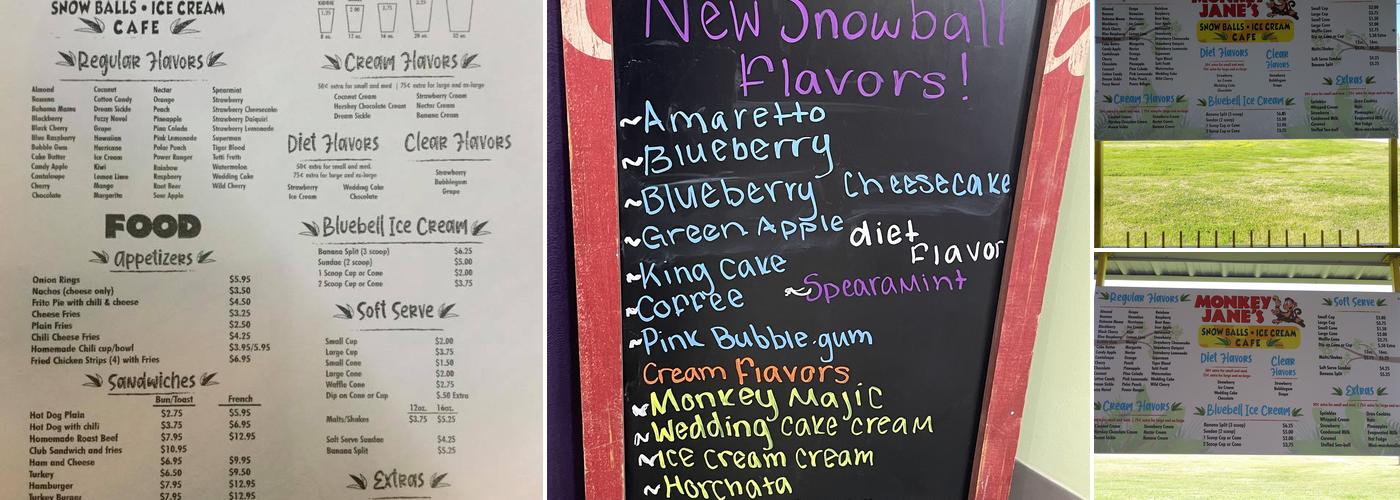 SNOW BALLS • ICE CREAM
CAFE
8 oz. 12 oz. 16 oz. 20 oz. 32 oz.
Regular Flavors
Almond Coconut Nectar Spearmint
Banana Cotton Candy Orange Strawberry
Bahama Mama Dream Sickle Peach Strawberry Cheesecake
Blackberry Fuzzy Navel Pineapple Strawberry Daiquiri
Black Cherry Grape Pina Colada Strawberry Lemonade
Blue Raspberry Hawaiian Pink Lemonade Superman
Bubble Gum Hurricane Polar Punch Tiger Blood
Cake Batter Ice Cream Power Ranger Tutti Frutti
Candy Apple Kiwi Rainbow Watermelon
Cantaloupe Lemon Lime Raspberry Wedding Cake
Cherry Mango Root Beer Wild Cherry
Chocolate Margarita Sour Apple
Cream Flavors
50¢ extra for small and med | 75¢ extra for large and ex-large
Coconut Cream Strawberry Cream
Hershey Chocolate Cream Nectar Cream
Dream Sickle Banana Cream
Diet Flavors
50¢ extra for small and med.
75¢ extra for large and ex-large
Strawberry Wedding Cake
Ice Cream Chocolate
Clear Flavors
Strawberry
Bubblegum
Grape
FOOD
Appetizers
Onion Rings $5.95
Nachos (cheese only) $3.50
Frito Pie with chili & cheese $4.50
Cheese Fries $3.25
Plain Fries $2.50
Chili Cheese Fries $4.25
Homemade Chili cup/bowl $3.95/5.95
Fried Chicken Strips (4) with Fries $6.95
Sandwiches
Bun/Toast French
Hot Dog Plain $2.75 $5.95
Hot Dog with chili $3.75 $6.95
Homemade Roast Beef $7.95 $12.95
Club Sandwich and fries $10.95
Ham and Cheese $6.95 $9.95
Turkey $6.50 $9.50
Hamburger $7.95 $12.95
Turkey Burger $7.95 $12.95
Bluebell Ice Cream
Banana Split (3 scoop) $6.25
Sundae (2 scoop) $5.00
1 Scoop Cup or Cone $2.00
2 Scoop Cup or Cone $3.75
Soft Serve
Small Cup $2.00
Large Cup $3.75
Small Cone $1.50
Large Cone $2.00
Waffle Cone $2.75
Dip on Cone or Cup $.50 Extra
12oz. 16oz.
Malts/Shakes $3.75 $5.25
Salt Serve Sundae $4.25
Banana Split $5.25
Extras
New Snowball
Flavors!
~Amaretto
~Blueberry
~Blueberry Cheesecake
~Green Apple diet
Flavor
~King Cake
~Spearamint
~Coffee
~Pink Bubble.gum
Cream Flavors
~Monkey Majic
~Wedding cake cream
~Ice cream cream
~Horchata
MONKEY
JANE'S
SNOW BALLS • ICE CREAM
CAFE
Diet Flavors
Clear
Flavors
Extras
Cream Flavors
Bluebell Ice Cream
Regular Flavors
MONKEY
JANE'S
SNOW BALLS • ICE CREAM
CAFE
Soft Serve
Diet Flavors
Clear
Flavors
Extras
Cream Flavors
Bluebell Ice Cream
Banana Split (3 scoop) $6.25
Sundae (2 scoop) $5.00
1 Scoop Cup or Cone $2.00
2 Scoop Cup or Cone $3.75